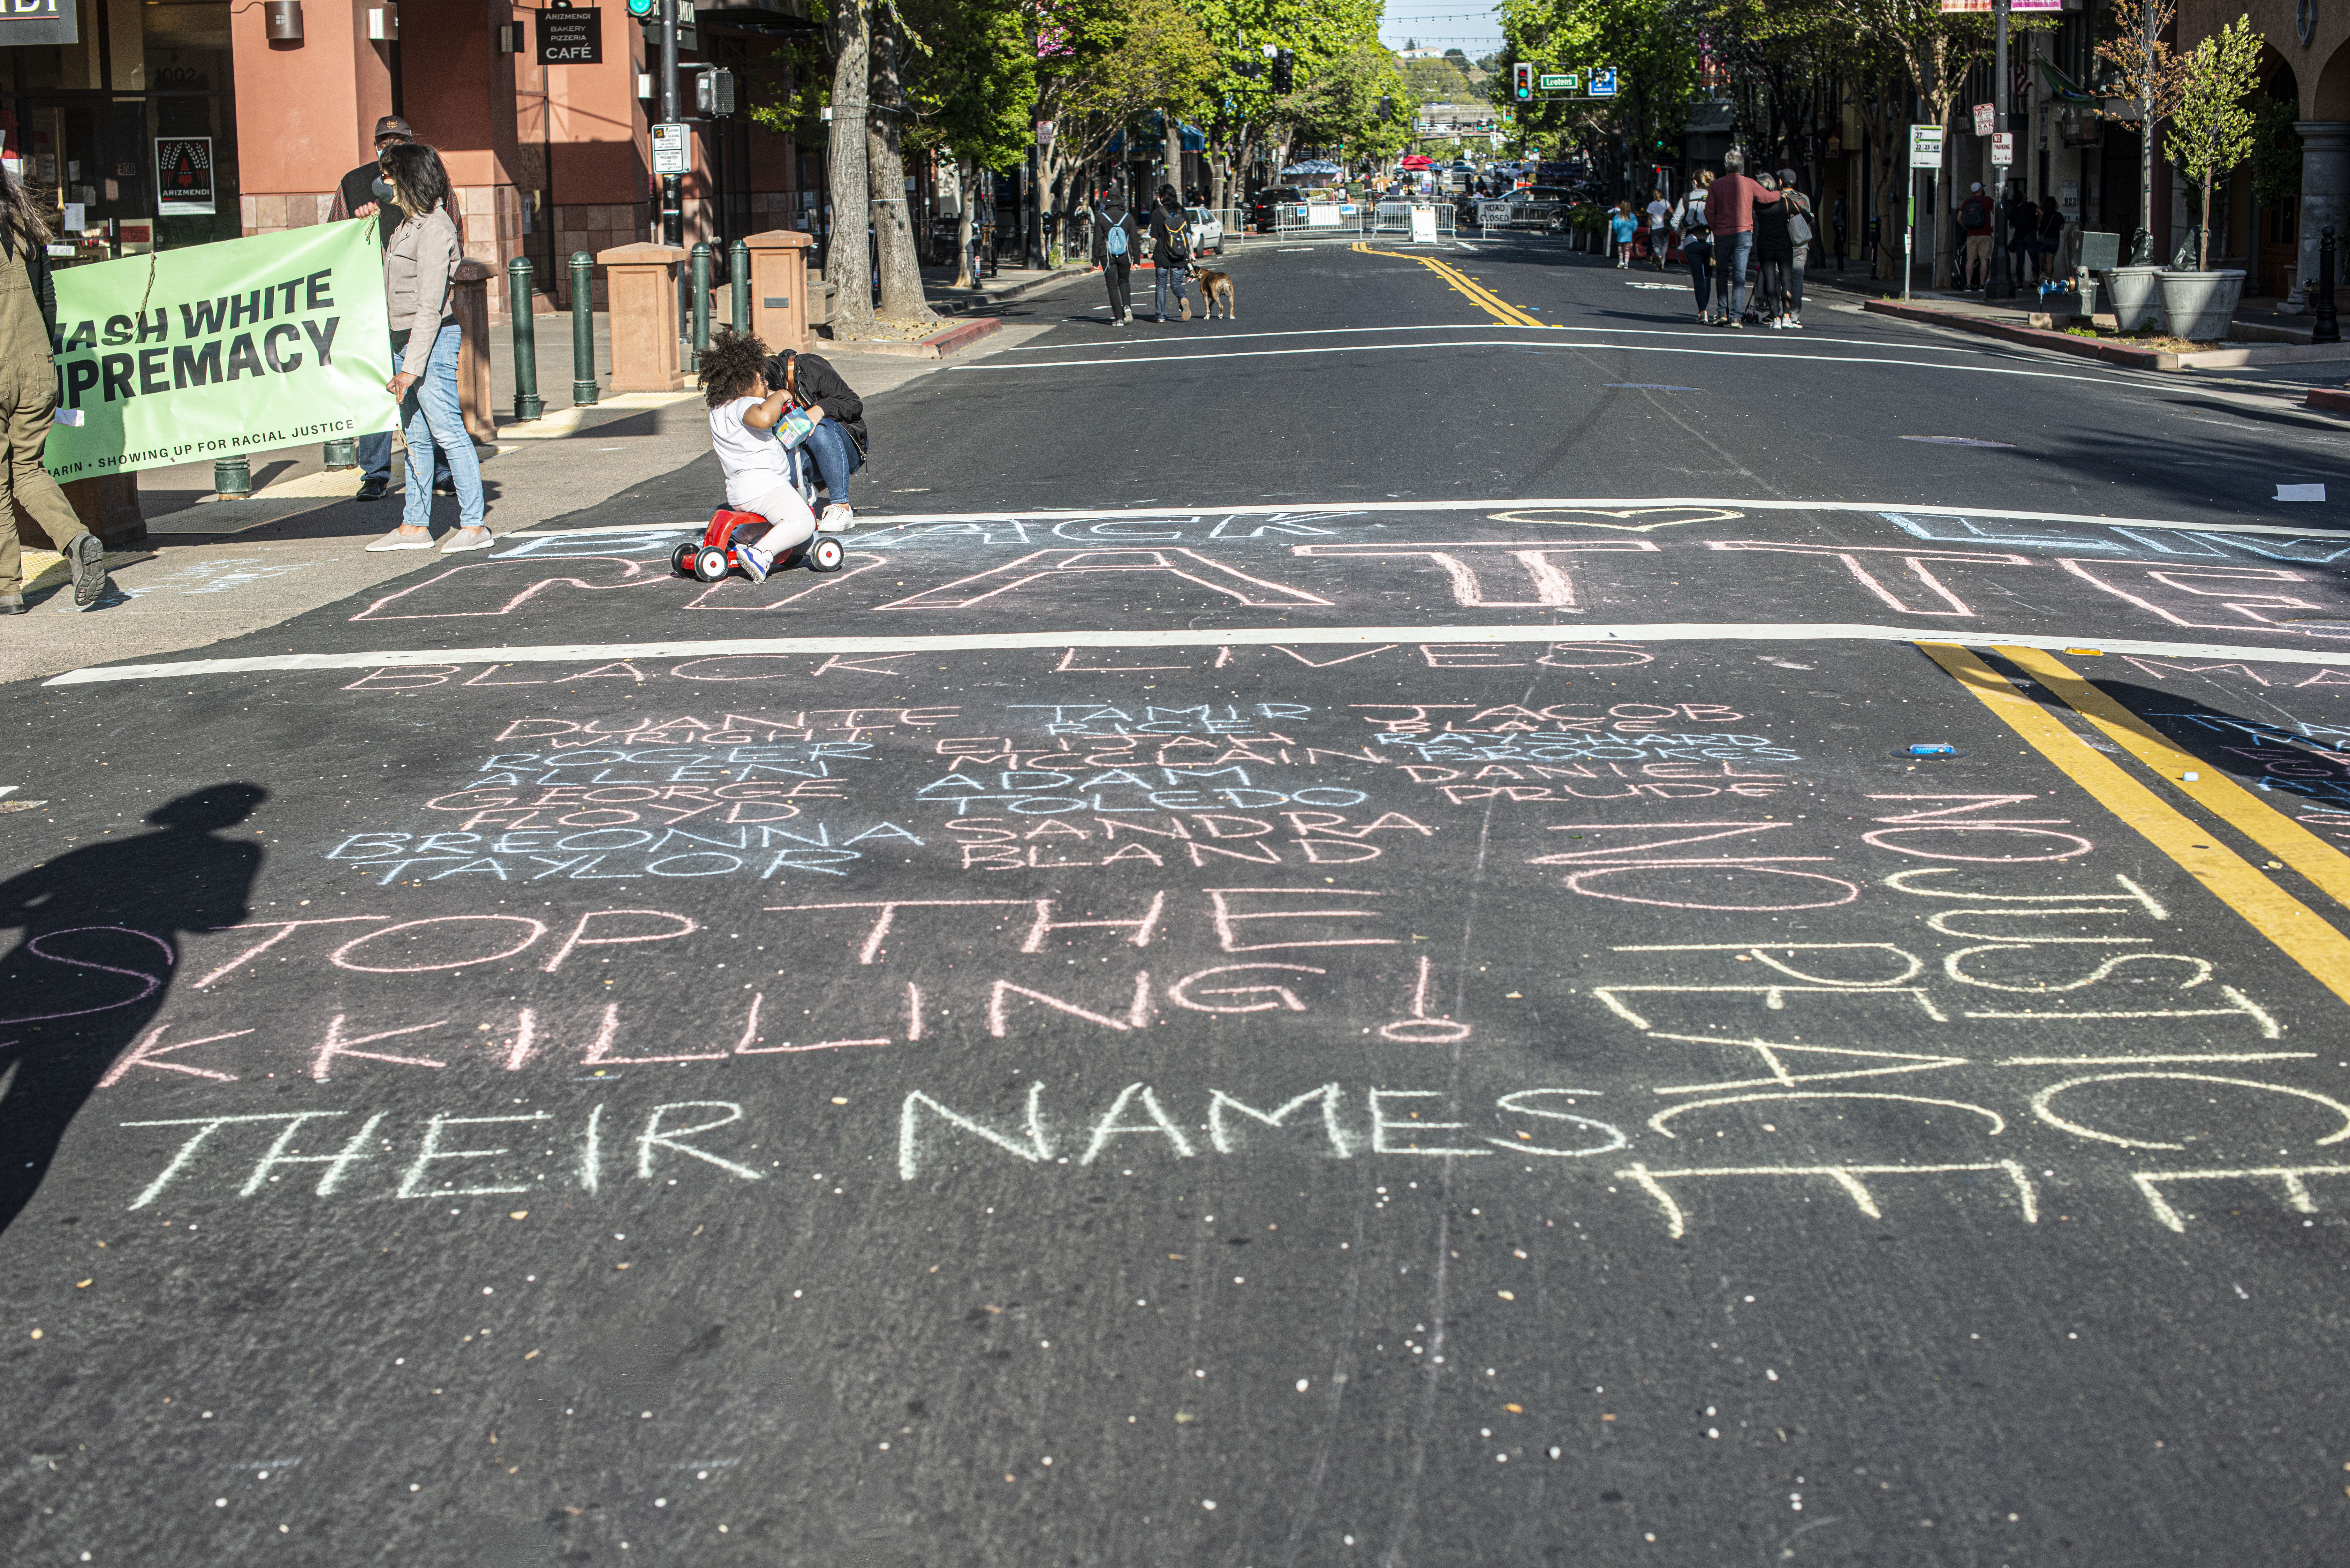 ARIZMENDI
BAKERY
PIZZERIA
CAFÉ
1002
ARIZMENDI
Leotens
ROAD
CLOSED
NO
PARKING
HASH WHITE
UPREMACY
MARIN • SHOWING UP FOR RACIAL JUSTICE
BLACK LIV
MATTE
BLACK LIVES MA
DUANTE WRIGHT
TAMIR RICE
JACOB BLAKE
ROGER ALLEN
ELIJAH MCCLAIN
RAYSHARD BROOKS
GEORGE FLOYD
ADAM TOLEDO
DANIEL PRUDE
BREONNA TAYLOR
SANDRA BLAND
STOP THE
KKILLING!
THEIR NAMES
NO JUSTICE
NO PEACE